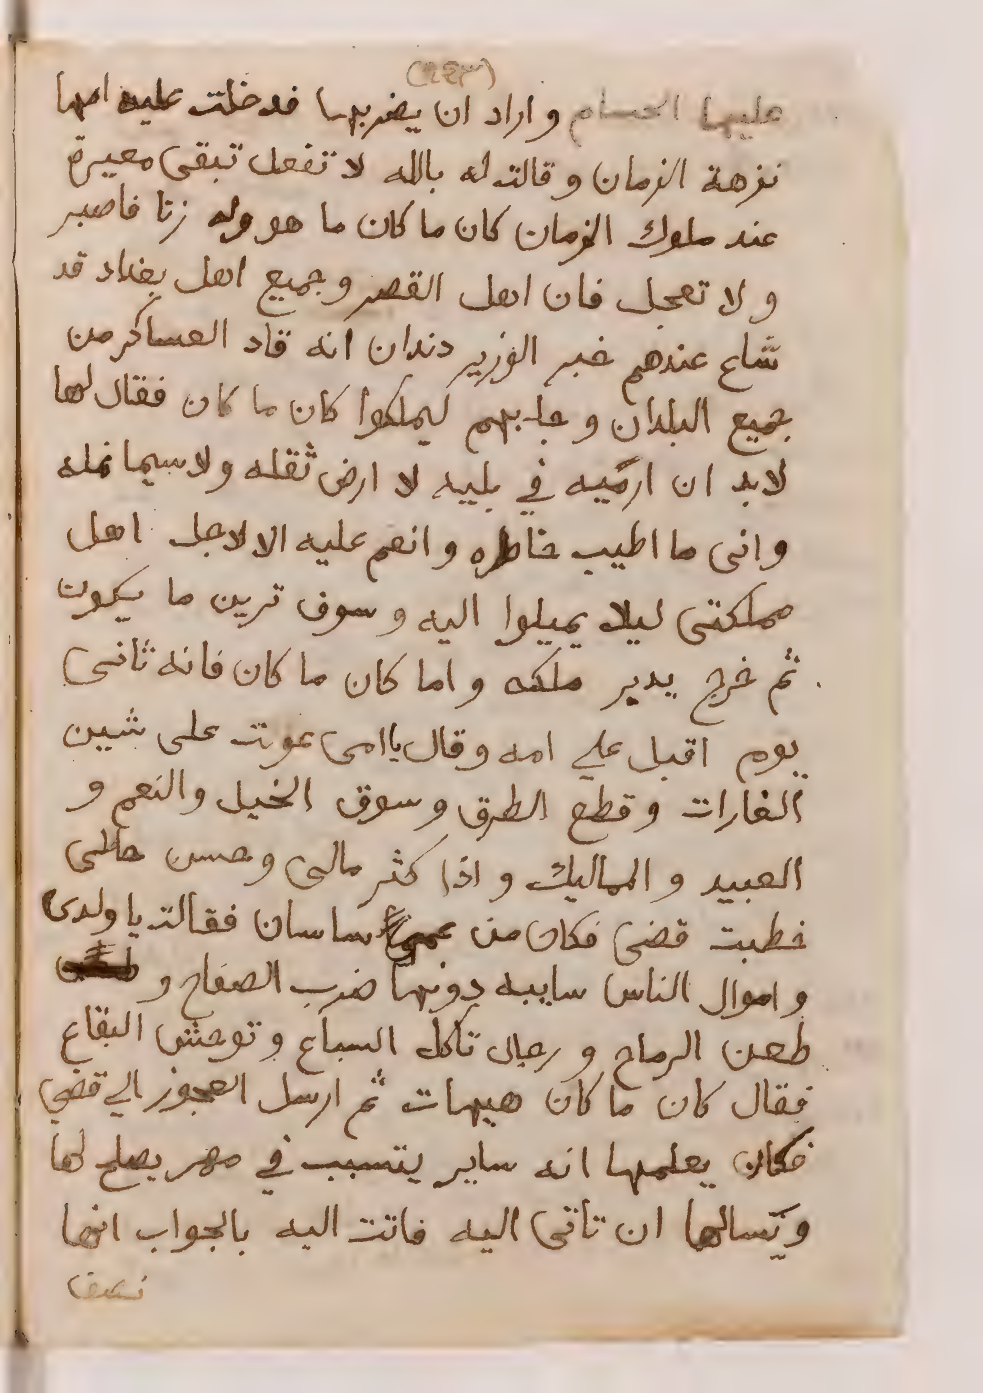 (٢٤٣)
عليها الحسام و اراد ان يضربها فدخلت عليه امها
نزهة الزمان و قالت له بالله لا تفعل تبقى معيرة
عند ملوك الزمان كان ما كان ما هو ولد زنا فاصبر
و لا تعجل فان اهل القصر و جميع اهل بغداد قد
شاع عندهم خبر الوزير دندان انه قاد العساكر من
جميع البلدان و جا بهم ليملكوا كان ما كان فقال لها
لابد ان ارميه في بليه لا ارض تقله ولا سيما تمله
و انى ما اطيب خاطره و انعم عليه الا لاجل اهل
مملكتى ليلا يميلوا اليه و سوف ترين ما يكون
ثم خرج يدبر ملكه و اما كان ما كان فانه ثانى
يوم اقبل علي امه وقال يا امى عولت على شين
الغارات و قطع الطرق و سوق الخيل والنعم و
العبيد و المماليك و اذا كثر مالى و حسن حالى
خطبت قضى فكان من عمى ساسان فقالت يا ولدى
و اموال الناس سايبه دونها ضرب الصفاح و
طعن الرماح و رجال تاكل السباع و توحش البقاع
فقال كان ما كان هيهات ثم ارسل العجوز الي قضى
فكان يعلمها انه ساير يتسبب في مهر يصلح لها
و يسالها ان تاتى اليه فاتت اليه بالجواب انها
نصف